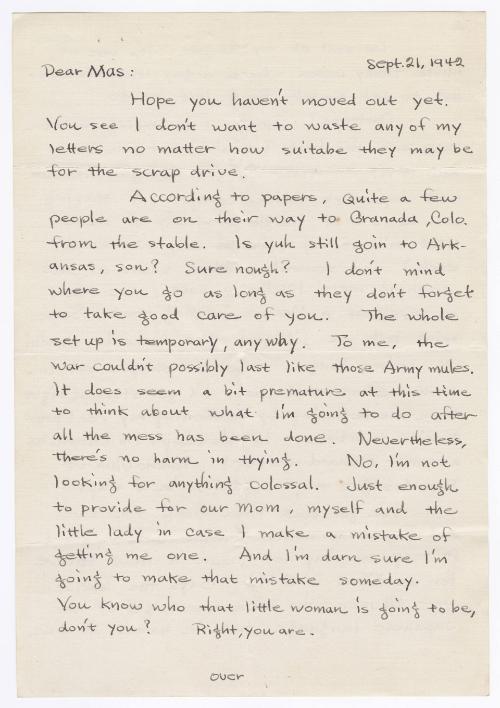 Sept. 21, 1942
Dear Mas:
Hope you haven't moved out yet.
You see I don't want to waste any of my
letters no matter how suitabe they may be
for the scrap drive.
According to papers, quite a few
people are on their way to Granada, Colo.
from the stable. Is yuh still goin to Ark-
ansas, son? Sure nough? I don't mind
where you go as long as they don't forget
to take good care of you. The whole
set up is temporary, anyway. To me, the
war couldn't possibly last like those Army mules.
It does seem a bit premature at this time
to think about what I'm going to do after
all the mess has been done. Nevertheless,
there's no harm in trying. No, I'm not
looking for anything colossal. Just enough
to provide for our Mom, myself and the
little lady in case I make a mistake of
getting me one. And I'm darn sure I'm
going to make that mistake someday.
You know who that little woman is going to be,
don't you? Right, you are.
over